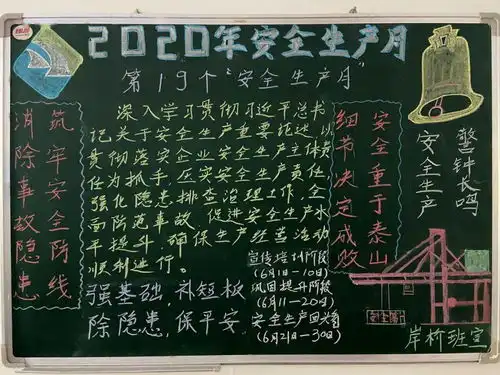 2020年安全生产月
第19个"安全生产月"
消除事故隐患
筑牢安全防线
深入学习贯彻习近平总书
记关于安全生产重要论述,以
贯彻落实企业安全生产主体责
任为抓手,压实安全生产责任,
强化隐患排查治理工作,全
面防范事故,促进安全生产水
平提升,确保生产经营活动
顺利进行。
强基础,补短板
除隐患,保平安
宣传培训阶段
(6月1日-10日)
巩固提升阶段
(6月11-20日)
安全生产回头看
(6月21-30日)
细节决定成败
安全重于泰山
安全生产
警钟长鸣
安全第一
岸桥班宣